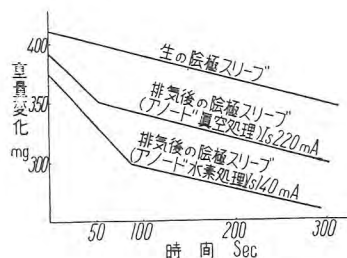 400
350
300
重量変化
mg
生の陰極スリーブ
排気後の陰極スリーブ
(アノード真空処理)Is220mA
排気後の陰極スリーブ
(アノード水素処理)Is140mA
50 100 200 300
時間 Sec